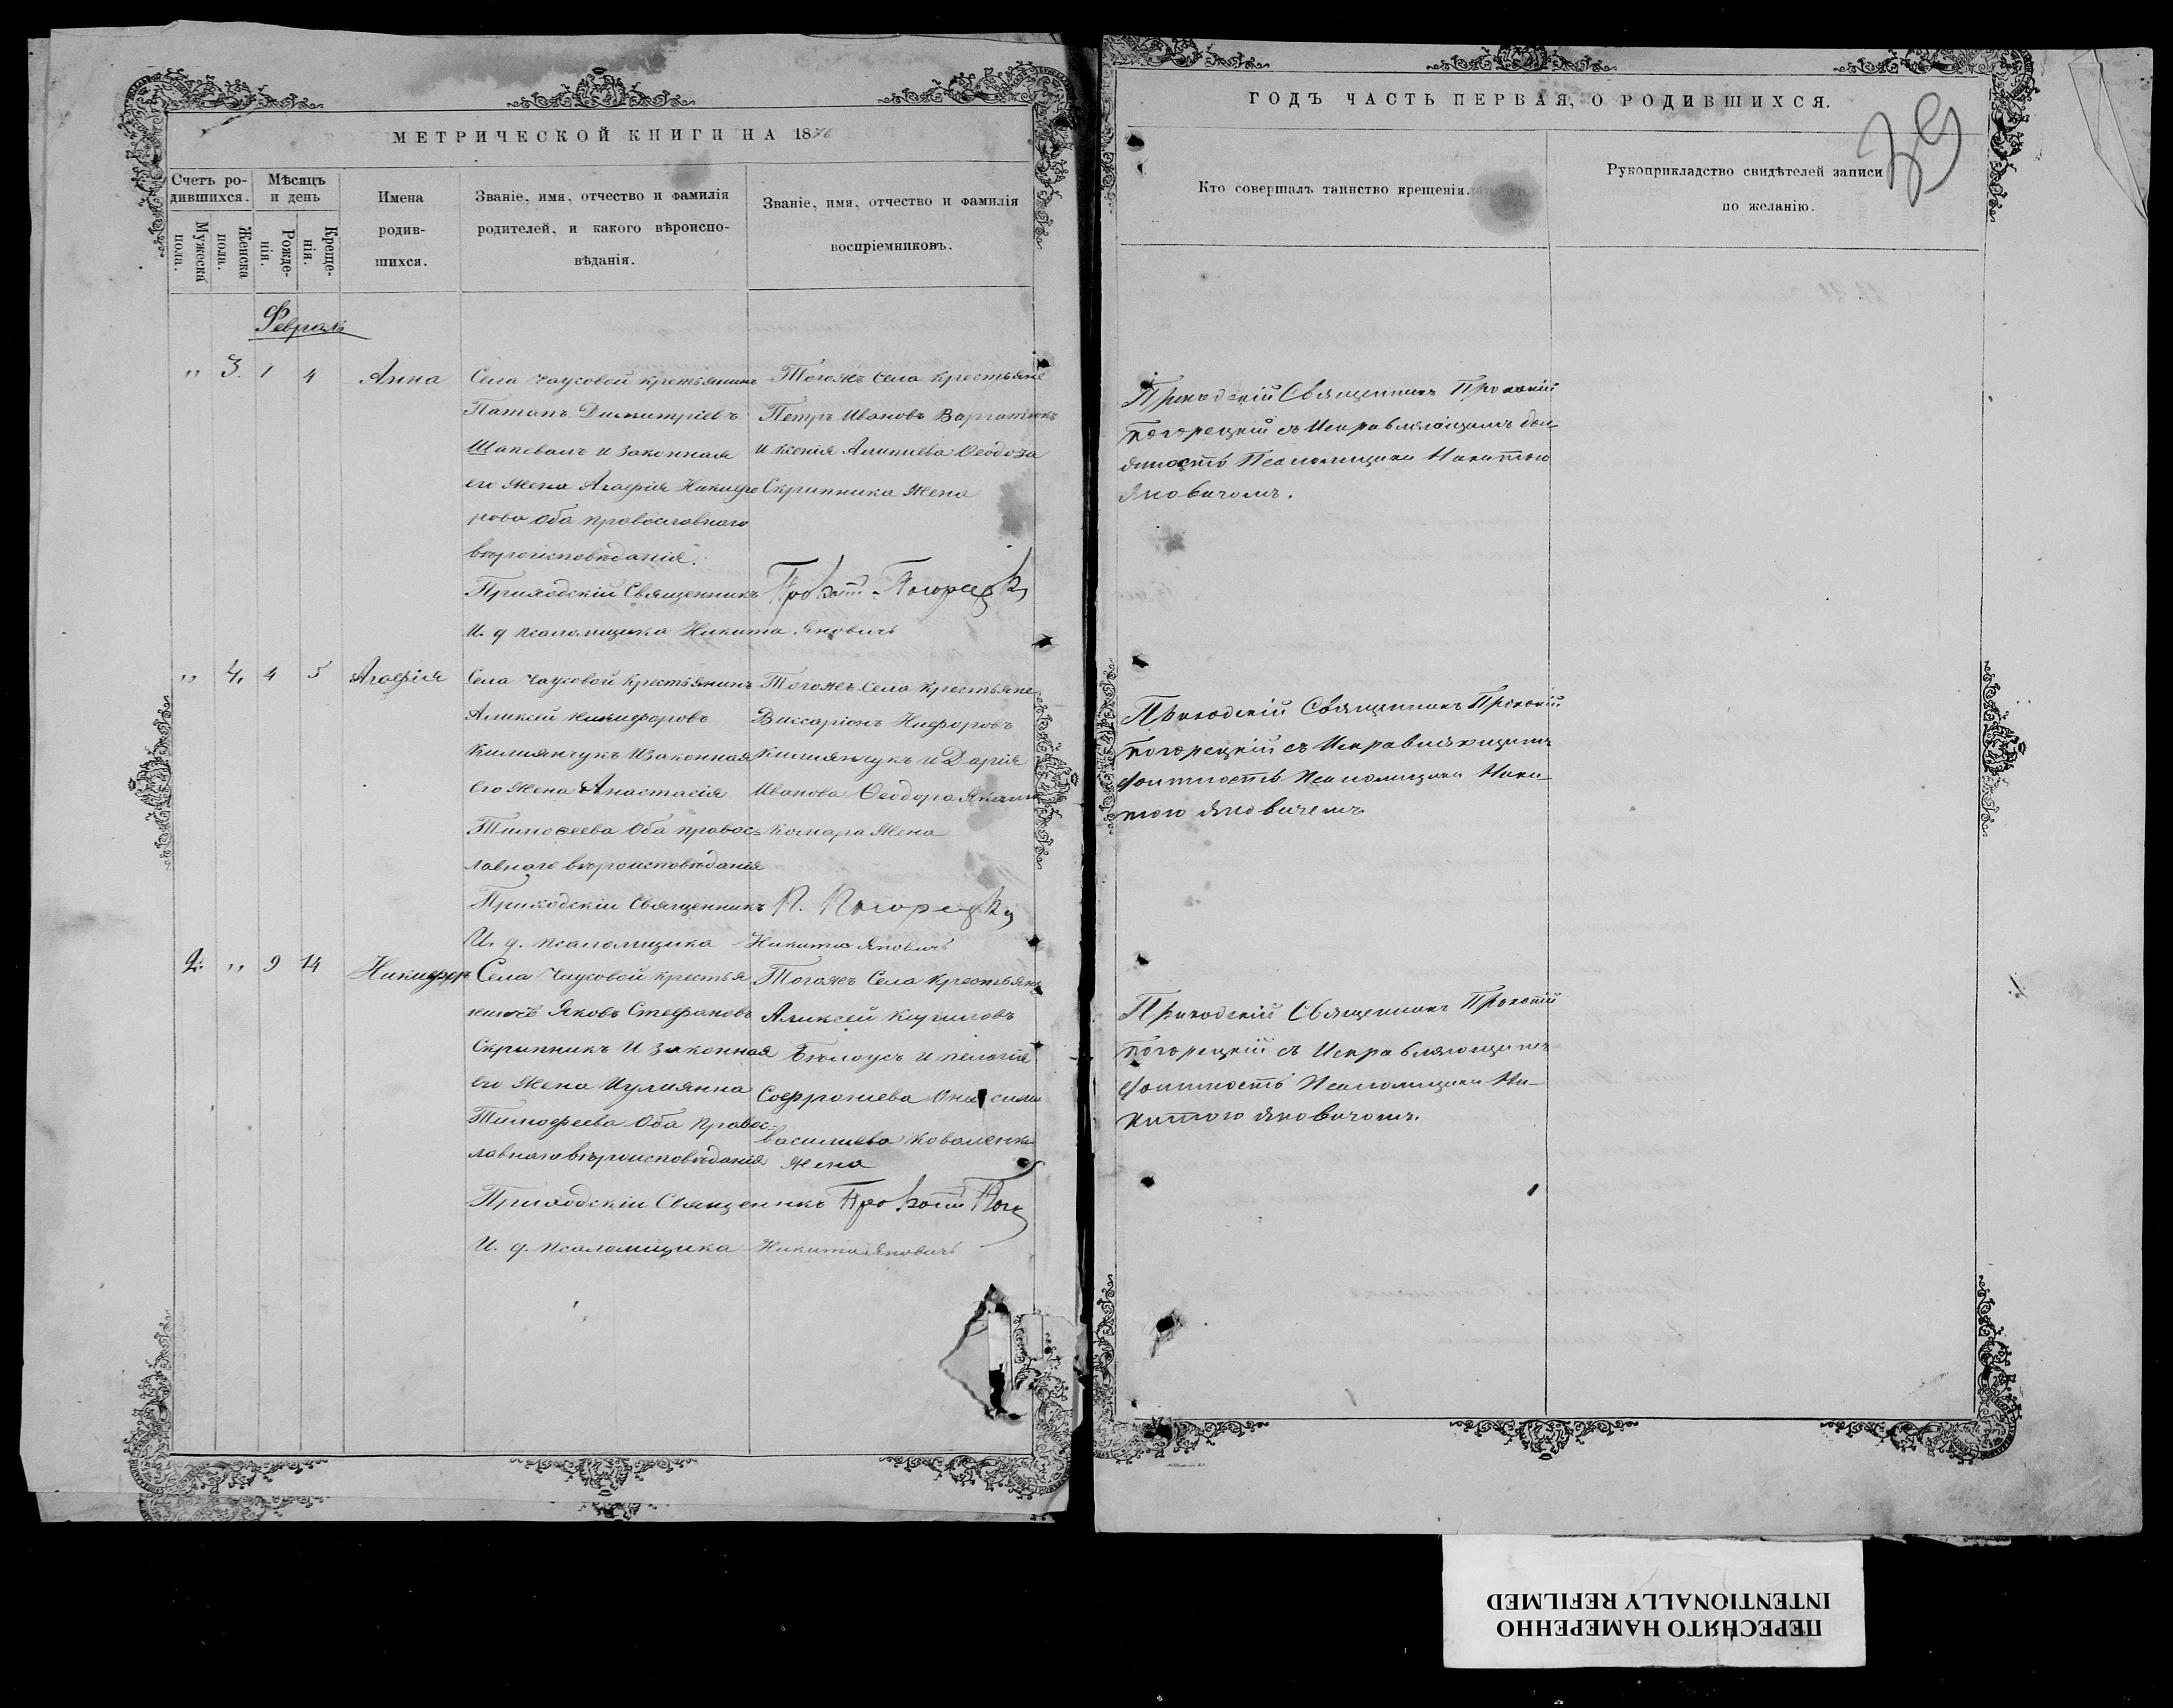 МЕТРИЧЕСКОЙ КНИГИ НА 1876
Счетъ ро-
дившихся.
Мужеска
пола.
Женска
пола.
Мѣсяцъ
и день
Рожде-
нія.
Креще-
нія.
Имена
родив-
шихся.
Званіе, имя, отчество и фамилія
родителей, и какого вѣроиспо-
вѣданія.
Званіе, имя, отчество и фамилія
воспріемниковъ.
Февраль
" 3. 1 4 Анна
Села Чаусовой крестьянинъ
Патапъ Димитріевъ
Шаповалъ и законная
его жена Агафія Никифо
рова оба православнаго
вѣроисповѣданія.
Тогожъ села крестьяне
Петръ Ивановъ
и Ксенія Алипиева Ѳеодо
Скрипника жена
Приходскій Священникъ
И. д. псаломщика Никита Яновичъ
" 4. 4 5 Агафія
Села Чаусовой крестьянинъ
Аликсей Никифоровъ
Килиянчукъ и законная
его жена Анастасія
Тимоѳеева оба правос-
лавнаго вѣроисповѣданія
Тогожъ села крестьяне
Виссаріонъ Нифоровъ
Килиянчукъ и Дарія
Иванова Ѳеодора
Комара жена
Приходскій Священникъ П. Погорецкій
И. д. псаломщика Никита Яновичъ
2. " 9 14 Никифоръ
Села Чаусовой крестья
нинъ Яковъ Стефановъ
Скрипникъ и законная
его жена Иулиянна
Тимофеева оба правос-
лавнаго вѣроисповѣданія
Тогожъ села крестьяне
Аликсей Кириловъ
Бѣлоусъ и Пелагія
Софрониева
василиева Коваленка
жена
Приходскій Священикъ
И. д. псаломщика Никита Яновичъ
ГОДЪ ЧАСТЬ ПЕРВАЯ, О РОДИВШИХСЯ.
39
Кто совершалъ таинство крещенія.
Рукоприкладство свидѣтелей записи
по желанію.
Приходскій Священникъ Прокопій
Погорецкій съ Исправляющимъ дол
жность Псаломщика Никитою
Яновичомъ.
Приходскій Священникъ Прокопій
Погорецкій съ Исправляющимъ
должность Псаломщика Ники-
тою Яновичемъ
Приходскій Священникъ Прокопій
Погорецкій съ Исправляющимъ
должность Псаломщика Ни-
китою Яновичомъ.
ПЕРЕСНЯТО НАМЕРЕННО
INTENTIONALLY REFILMED